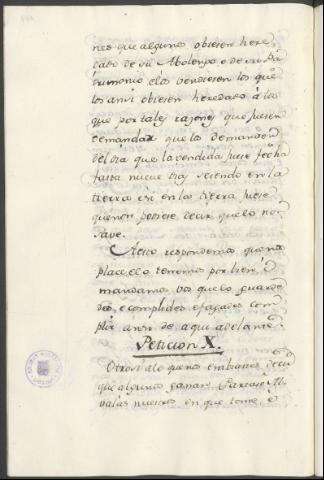 nes que algunos obieren here
dado de su Abolengo e de su Pa
trimonio e los vendieren los que
los ansi obieren heredado á los
que por tales razones que fueren
demandar que lo demanden
del dia que la vendida fuere fecha
fasta nueve dias seiendo en la
tierra e si en la tierra fuere
que non podiese decir que lo no
save.
A esto respondemos que nos
place, e lo tenemos por bien, e
mandamos vos que lo guarde
des, e complides e fagades com
plir ansi de aqui adelante.
Peticion X.
Otrosi a lo que nos embiaron decir
que algunos ganan Cartas
nuestras en que tome, e